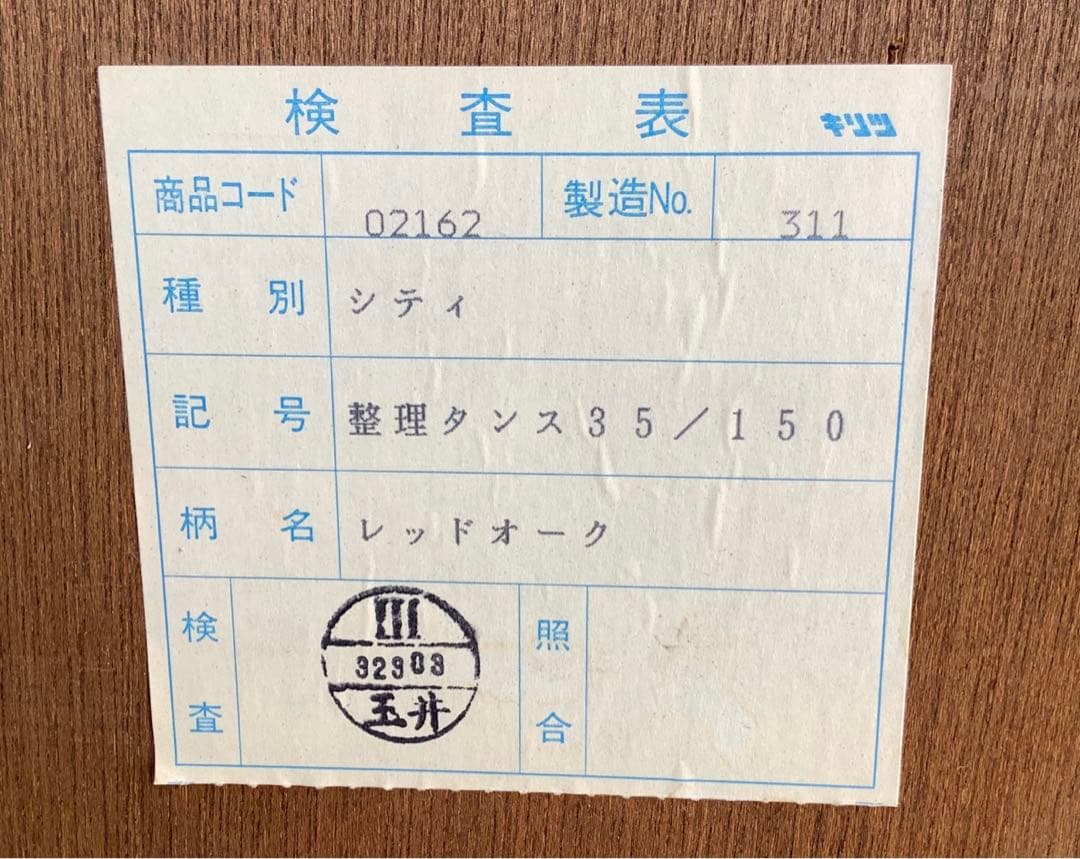 検査表 キリツ
商品コード 02162 製造No. 311
種別 シティ
記号 整理タンス35/150
柄名 レッドオーク
検査 III 照合
32303
玉井